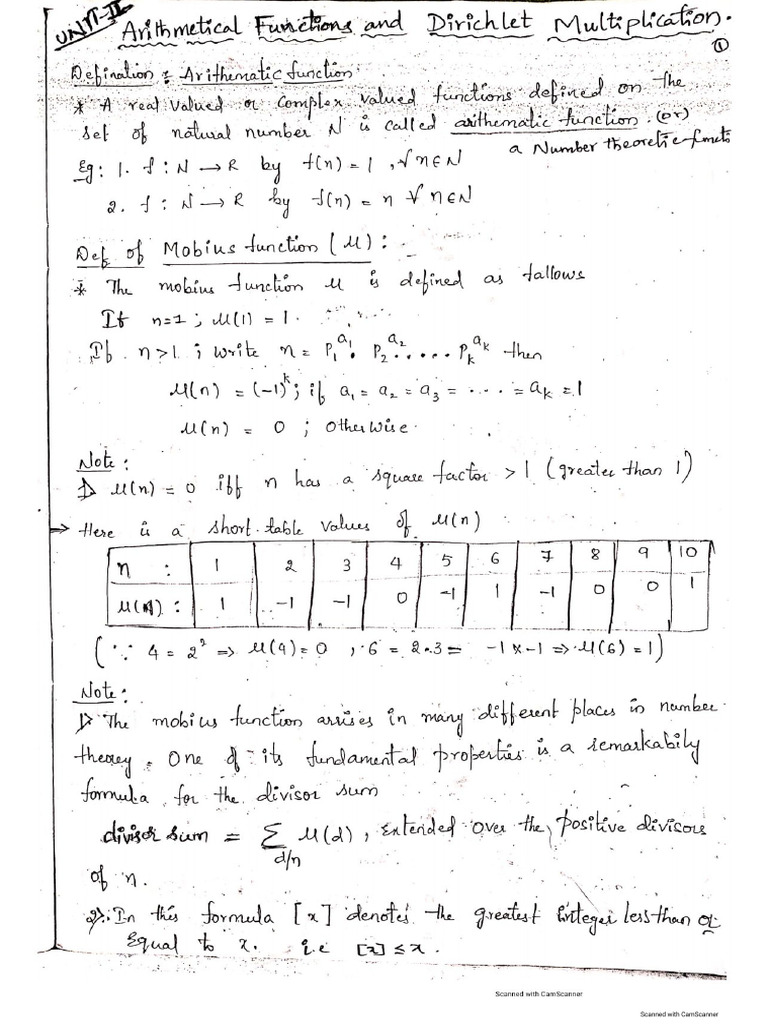 UNIT-II
Arithmetical Functions and Dirichlet Multiplication.
①
Defination : Arithematic function
* A real valued or complex valued functions defined on the
set of natural number N is called arithematic function. (or)
a Number theoretic
Eg: 1. f : N → R by f(n) = 1 , ∀ n ∈ N
2. f : N → R by f(n) = n ∀ n ∈ N
Def of Mobius function (μ) :
* The mobius function μ is defined as fallows
If n=1 ; μ(1) = 1.
If n>1 ; write n = p₁^a₁ . p₂^a₂ . .... pₖ^aₖ then
μ(n) = (-1)^k ; if a₁ = a₂ = a₃ = .... = aₖ = 1
μ(n) = 0 ; otherwise.
Note :
1> μ(n) = 0 iff n has a square factor > 1 (greater than 1)
→ Here is a short table values of μ(n)
n : 1 2 3 4 5 6 7 8 9 10
μ(n) : 1 -1 -1 0 -1 1 -1 0 0 1
(∵ 4 = 2² ⇒ μ(4) = 0 , 6 = 2.3 = -1 x -1 ⇒ μ(6) = 1)
Note :
1> The mobius function arrises in many different places in number
theory. One of its fundamental properties is a remarkabily
formula for the divisor sum
divisor sum = Σ d/n μ(d) , extended over the positive divisors
of n.
2> In this formula [x] denotes the greatest integer less than or
Equal to x. i.e [x] ≤ x.
Scanned with CamScanner
Scanned with CamScanner